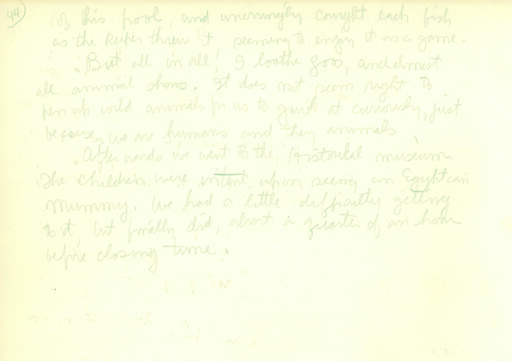 44
of his pool, and unerringly caught each fish
as the keeper threw it seeming to enjoy it as a game.
But all in all, I loathe zoos, and almost
all animal shows. It does not seem right to
pen up wild animals for us to gaze at curiously, just
because we are humans and they animals.
Afterwards we went to the Historical museum
The children were intent upon seeing an Egyptian
mummy. We had a little difficulty getting
to it, but finally did, about a quarter of an hour
before closing time.